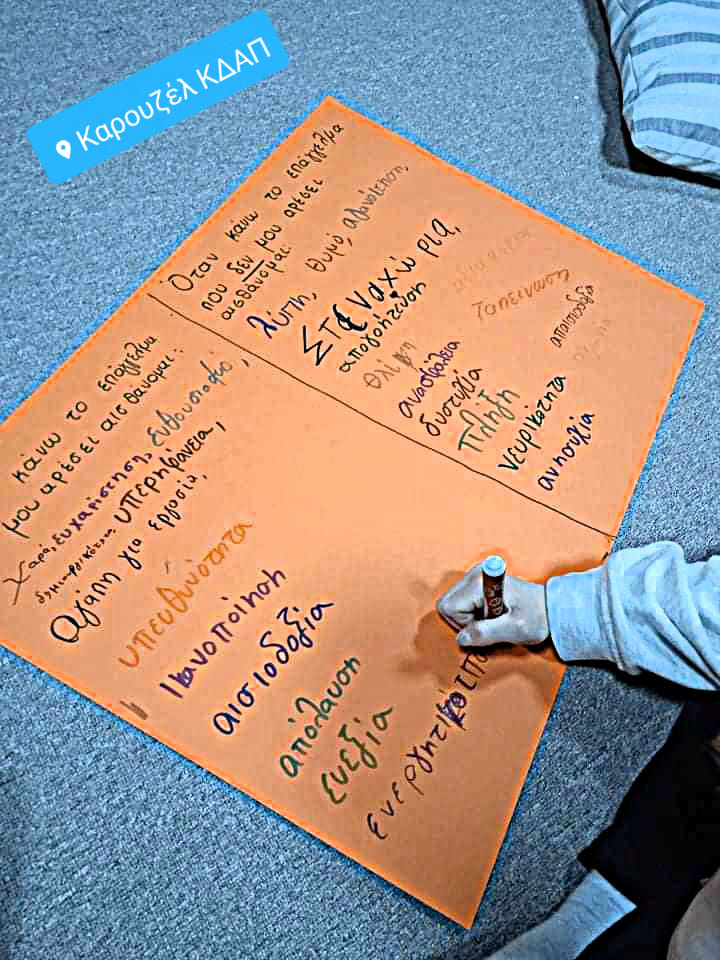 Καρουζέλ ΚΔΑΠ
Όταν κάνω το επάγγελμα
που δεν μου αρέσει
αισθάνομαι:
λύπη, θυμό,
Στεναχώρια,
απογοήτευση
θλίψη
ανασφάλεια
δυστυχία
Πλήξη
νευρικότητα
ανησυχία
ταπείνωση
απαισιοδοξία
κάνω το επάγγελμα
μου αρέσει αισθάνομαι:
Χαρά, ευχαρίστηση, ενθουσιασμό,
δημιουργικότητα, υπερηφάνεια,
αγάπη για εργασία,
υπευθυνότητα
Ικανοποίηση
αισιοδοξία
απόλαυση
ευεξία